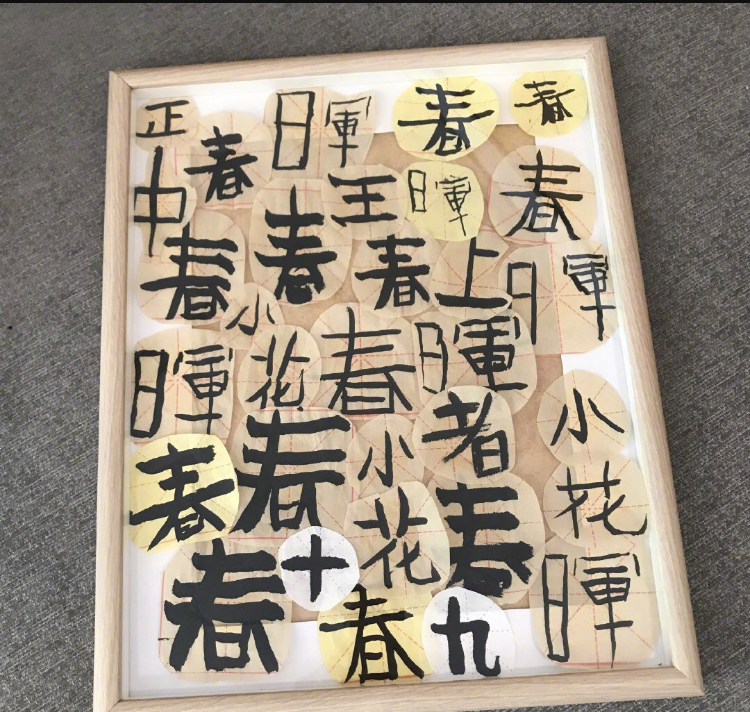 正 日軍 春 春
春
中 王 日軍 春
春 春 春 上 日軍
小
日軍 花 春 日軍
春 春 小 者 小
花 春 花
春 十 日軍
春 九